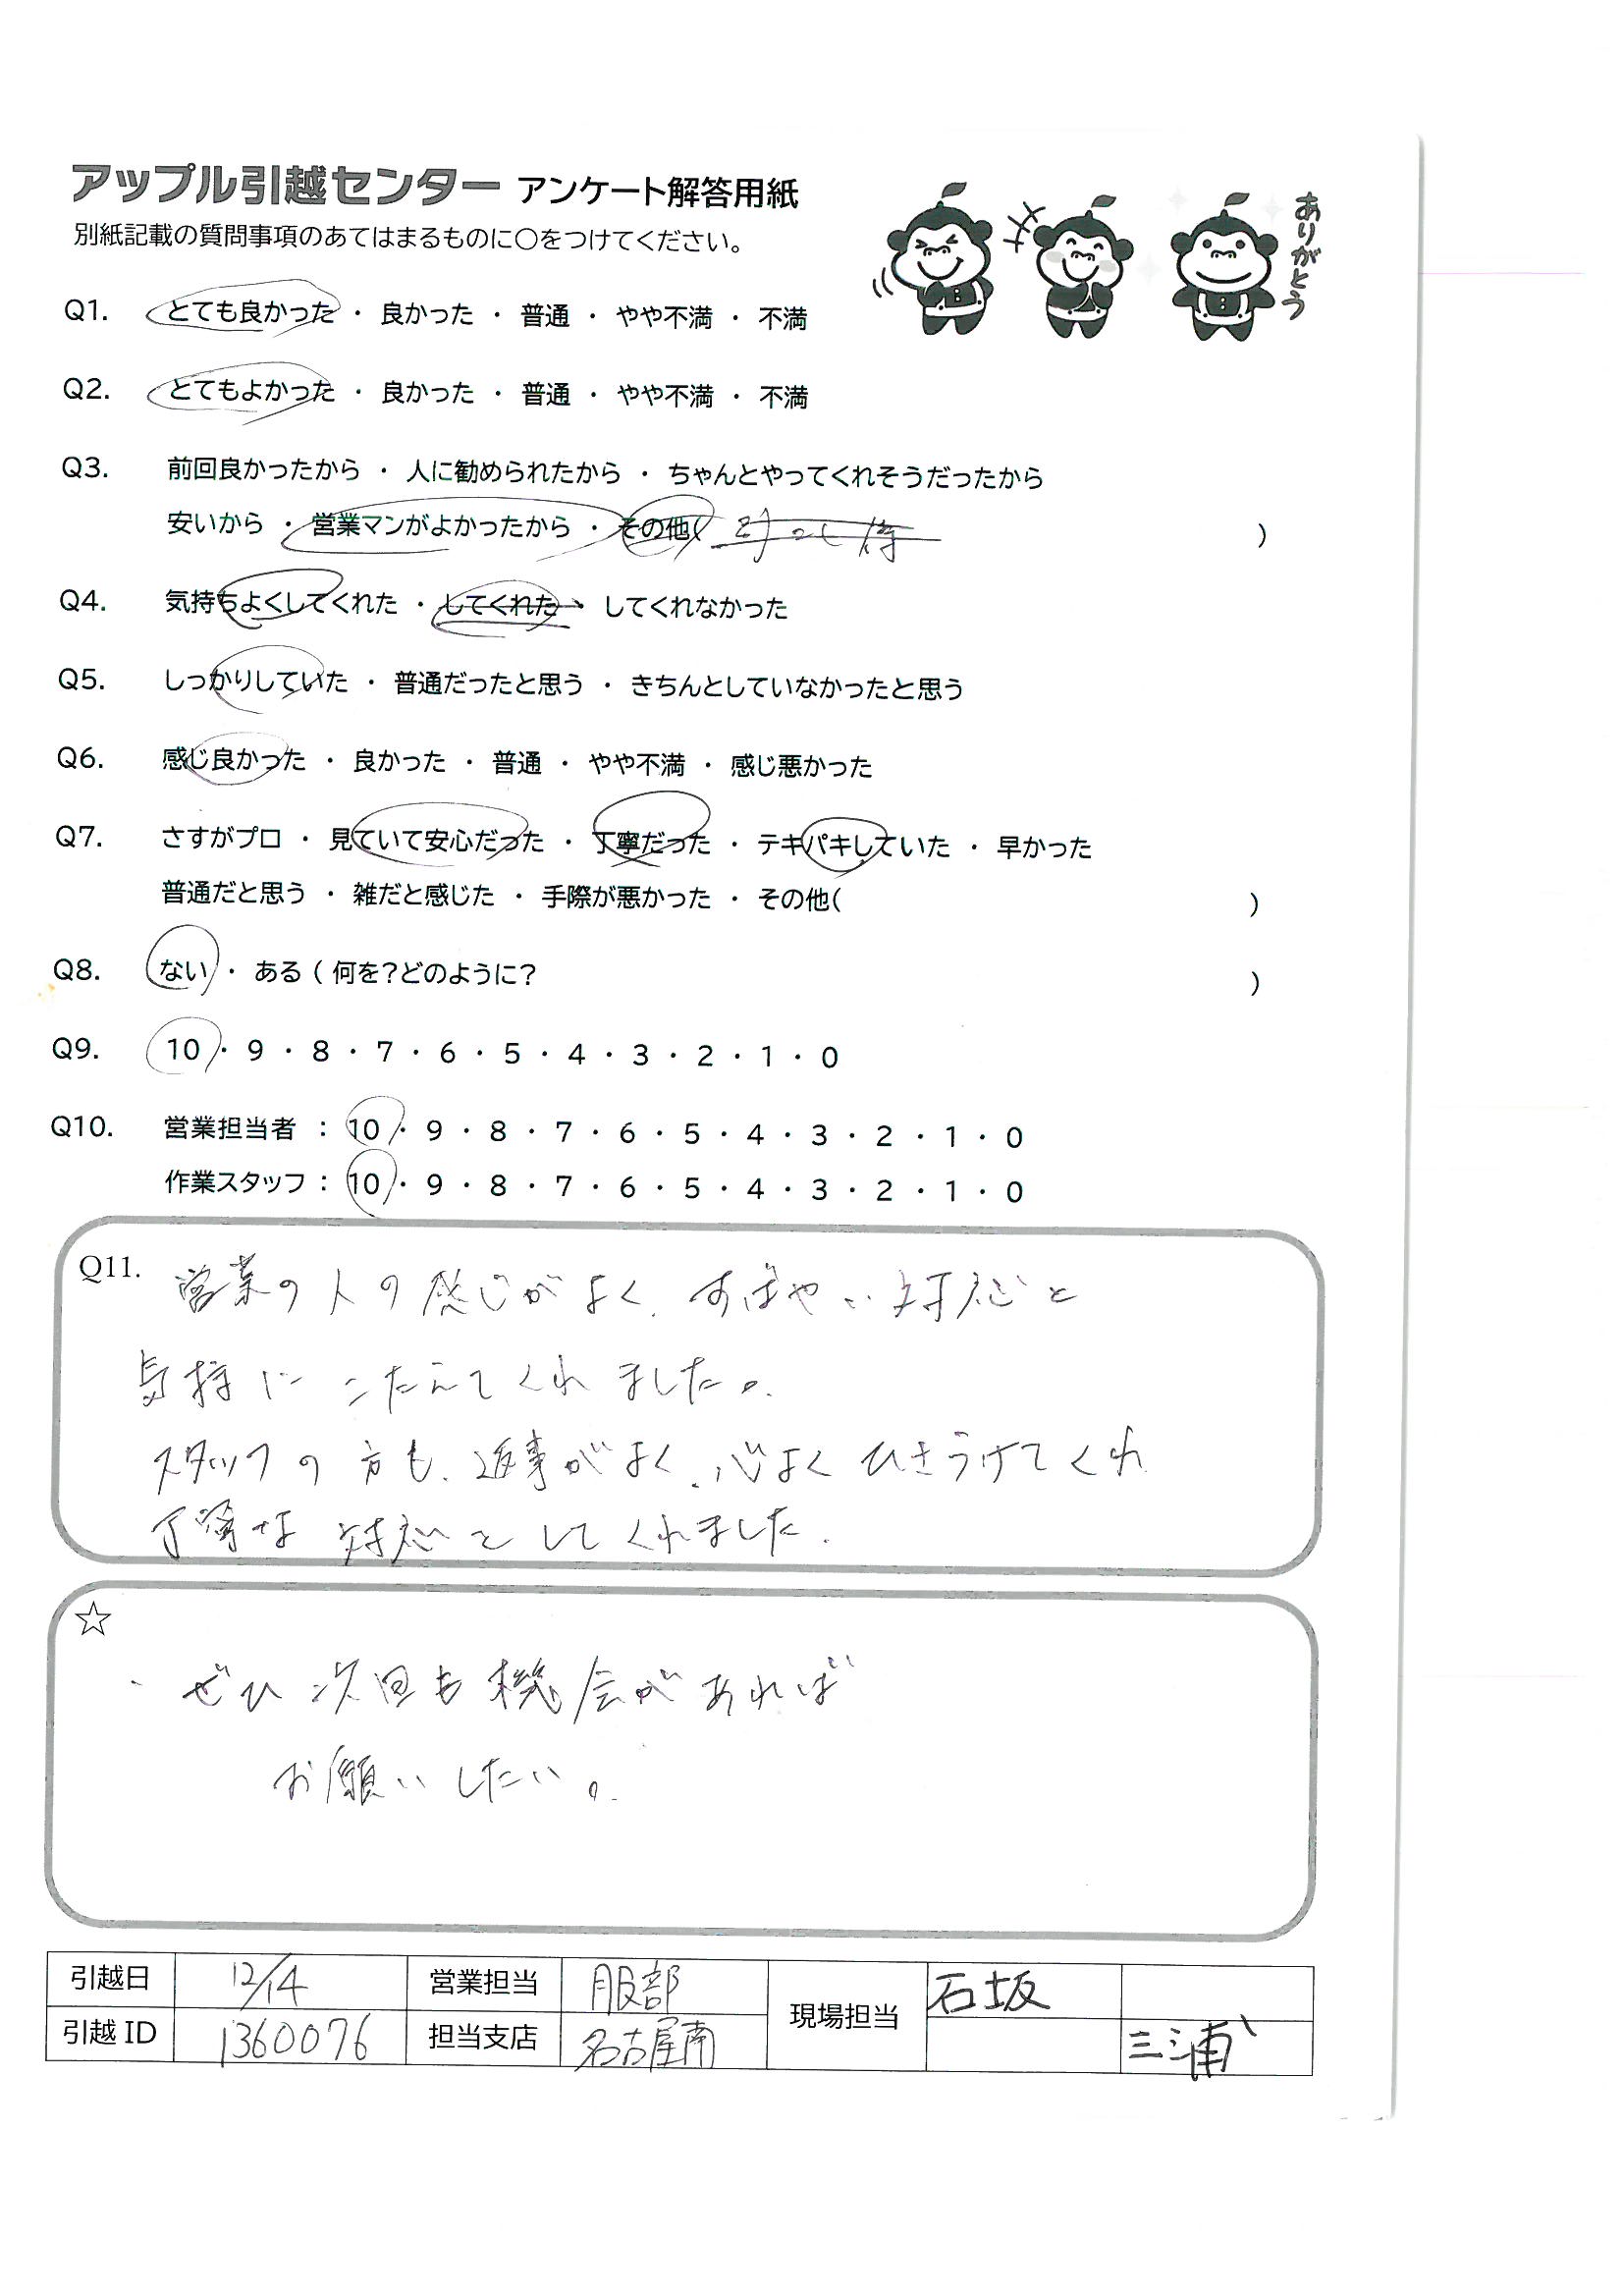 アップル引越センター アンケート解答用紙
別紙記載の質問事項のあてはまるものに〇をつけてください。
ありがとう
Q1. とても良かった ・ 良かった ・ 普通 ・ やや不満 ・ 不満
Q2. とてもよかった ・ 良かった ・ 普通 ・ やや不満 ・ 不満
Q3. 前回良かったから ・ 人に勧められたから ・ ちゃんとやってくれそうだったから
安いから ・ 営業マンがよかったから ・ その他( )
Q4. 気持ちよくしてくれた ・ してくれた ・ してくれなかった
Q5. しっかりしていた ・ 普通だったと思う ・ きちんとしていなかったと思う
Q6. 感じ良かった ・ 良かった ・ 普通 ・ やや不満 ・ 感じ悪かった
Q7. さすがプロ ・ 見ていて安心だった ・ 丁寧だった ・ テキパキしていた ・ 早かった
普通だと思う ・ 雑だと感じた ・ 手際が悪かった ・ その他( )
Q8. ない ・ ある ( 何を?どのように? )
Q9. 10 ・ 9 ・ 8 ・ 7 ・ 6 ・ 5 ・ 4 ・ 3 ・ 2 ・ 1 ・ 0
Q10. 営業担当者 : 10 ・ 9 ・ 8 ・ 7 ・ 6 ・ 5 ・ 4 ・ 3 ・ 2 ・ 1 ・ 0
作業スタッフ : 10 ・ 9 ・ 8 ・ 7 ・ 6 ・ 5 ・ 4 ・ 3 ・ 2 ・ 1 ・ 0
Q11. 営業の人の感じがよく、すばやい対応と
気持にこたえてくれました。
スタッフの方も、返事がよく、心よくひきうけてくれ
丁寧な対応をしてくれました.
☆
・ぜひ次回も機会があれば
お願いしたい。
引越日 12/14 営業担当 服部 現場担当 石坂
引越ID 1360076 担当支店 名古屋南 三浦